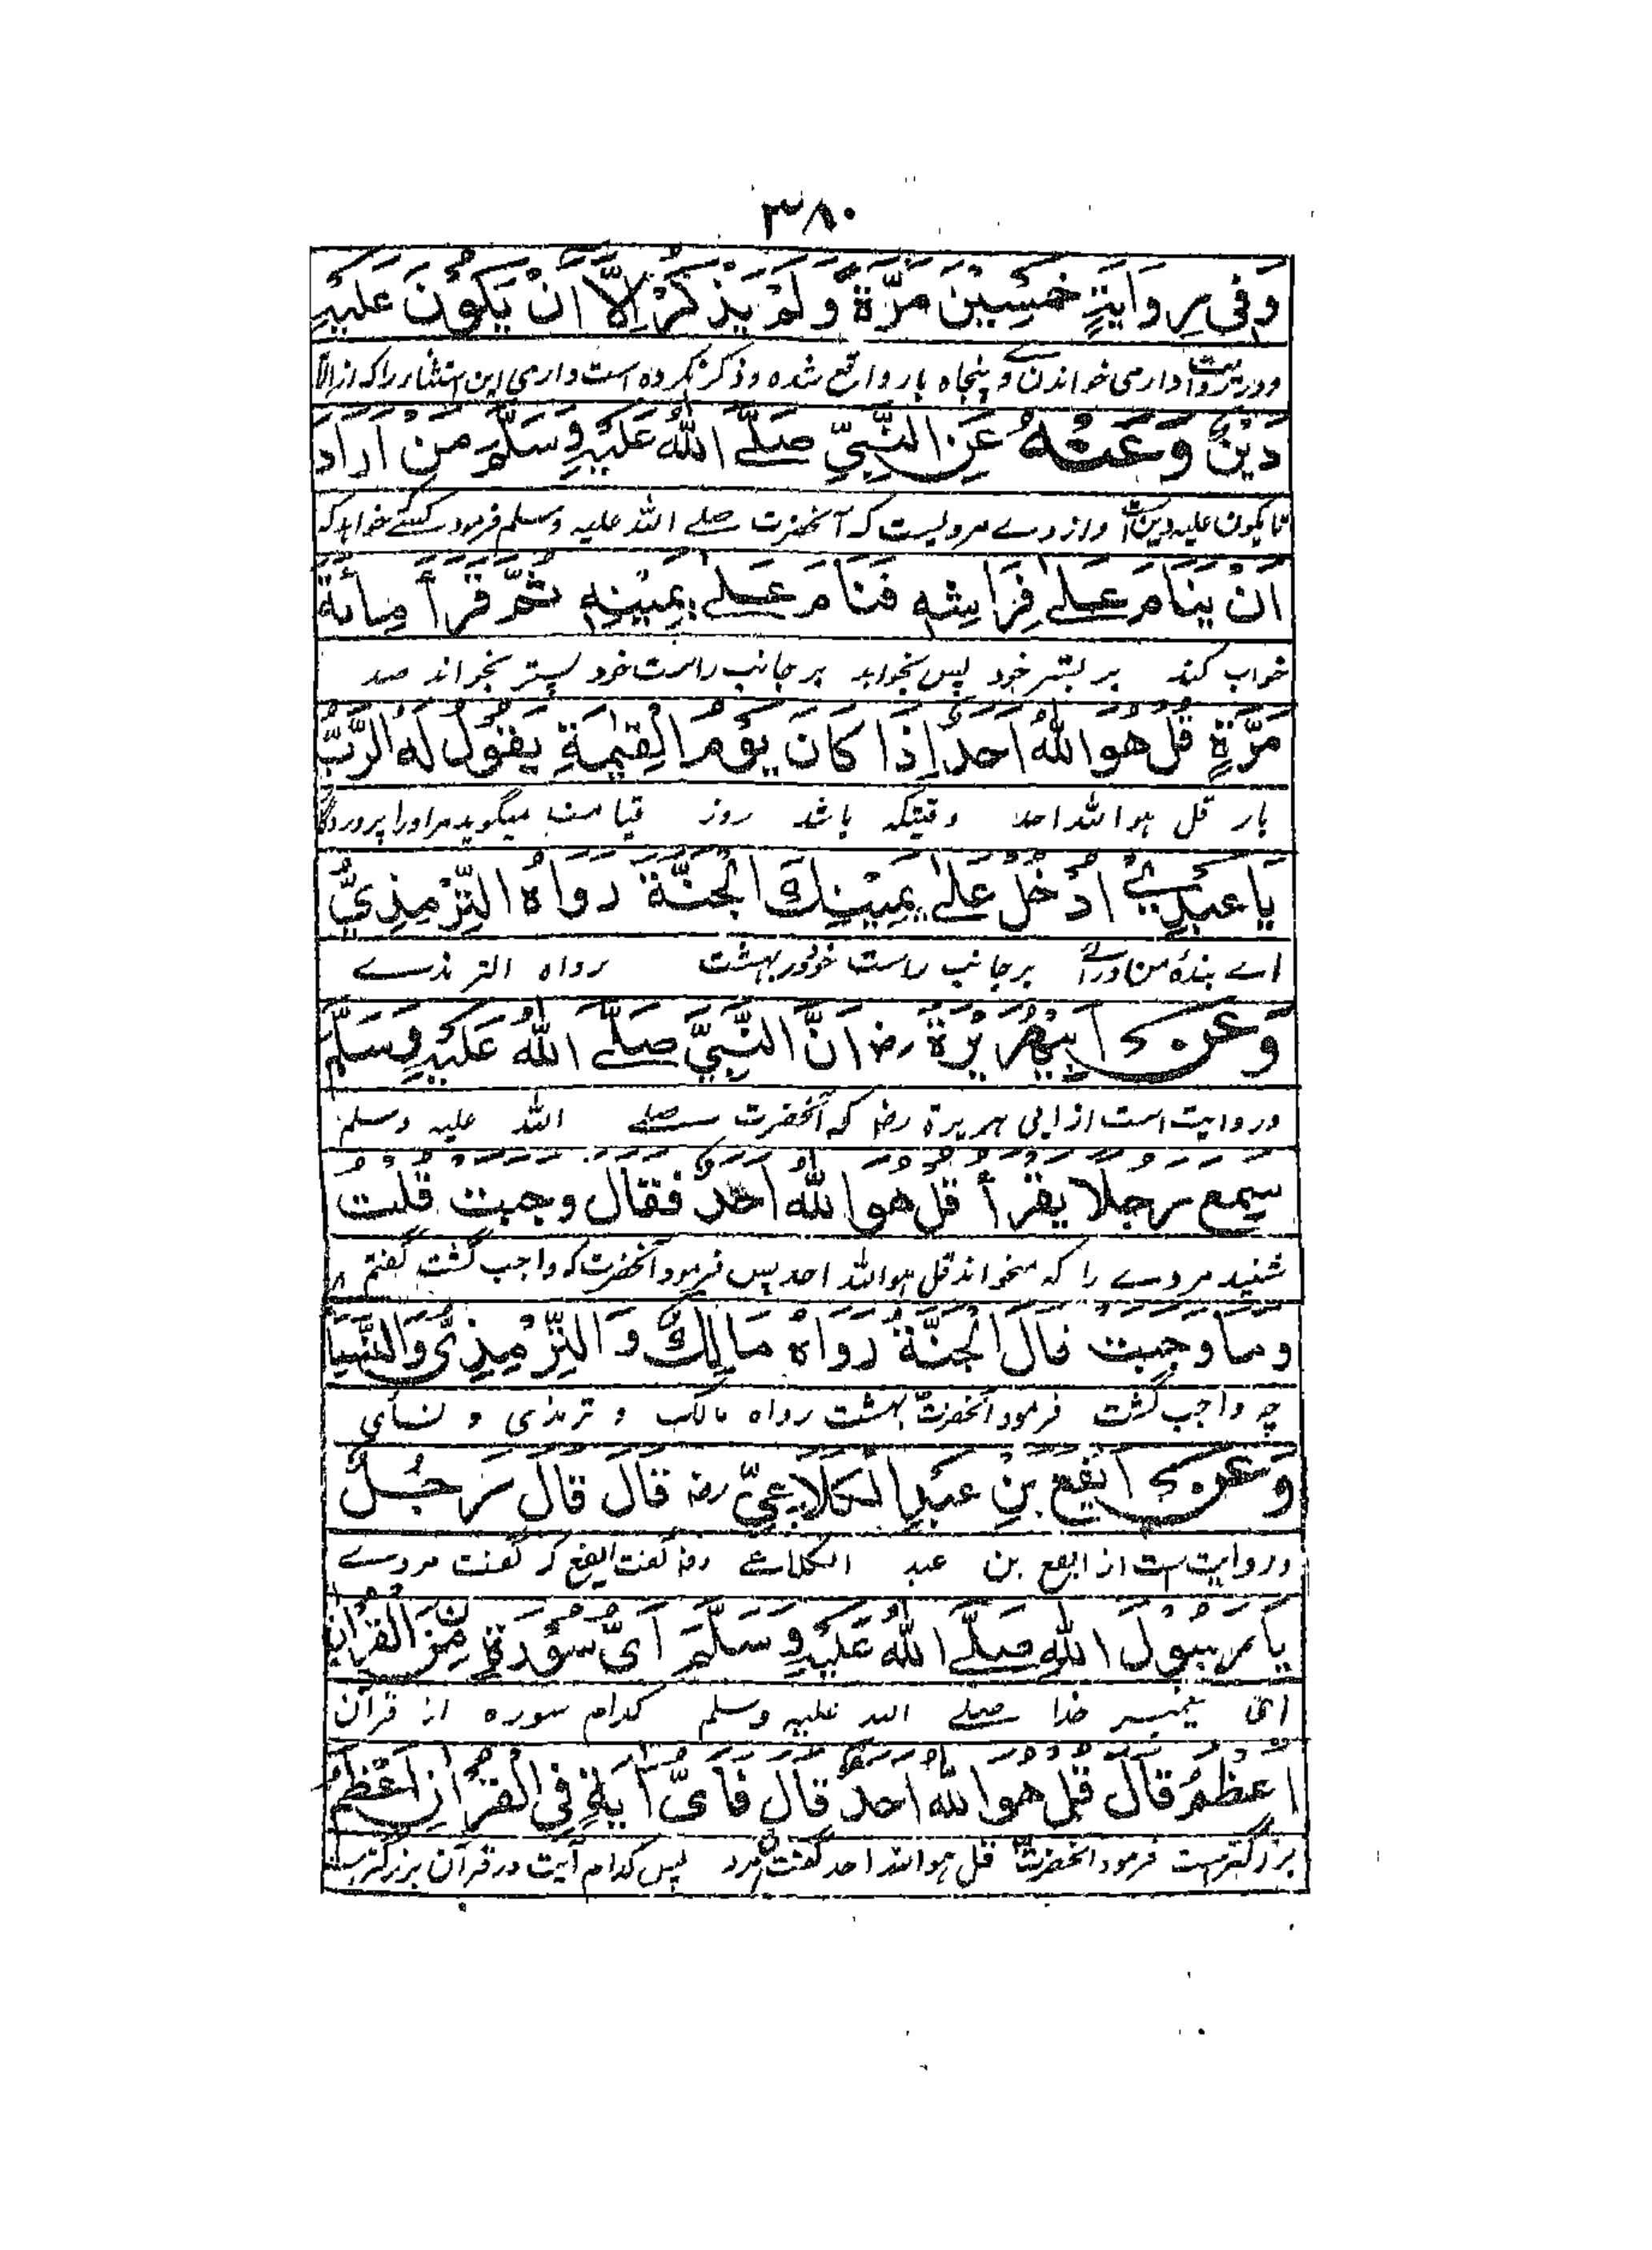 ٣٨٠
وَفِي رِوَايَةٍ خَمْسِيْنَ مَرَّةً وَلَمْ يَذْكُرْ اِلَّا اَنْ يَكُوْنَ عَلَيْهِ
ودر روایت دارمی خواندن پنجاه بار واقع شده وذکر نکرده است دارمی این استثنار را که از الا
دَيْنٌ وَعَنْهُ عَنِ النَّبِيِّ صَلَّے اللّٰهُ عَلَيْهِ وَسَلَّمَ مَنْ اَرَادَ
تا یکون علیه دین است واز وے مرویست که آنحضرت صلے اللہ علیہ وسلم فرمود کسے خواهد که
اَنْ يَنَامَ عَلٰے فِرَاشِهٖ فَنَامَ عَلٰے يَمِيْنِهٖ ثُمَّ قَرَأَ مِائَةَ
خواب کند بر بستر خود پس بخوابد بر جانب راست خود پستر بخواند صد
مَرَّةٍ قُلْ هُوَ اللّٰهُ اَحَدٌ اِذَا كَانَ يَوْمُ الْقِيٰمَةِ يَقُوْلُ لَهُ الرَّبُّ
بار قل ہو اللہ احد وقتیکہ باشد روز قیامت میگوید مر اورا پروردگا
يَا عَبْدِيْ اُدْخُلْ عَلٰے يَمِيْنِكَ الْجَنَّةَ رَوَاهُ التِّرْمِذِيُّ
اے بندۂ من درآے بر جانب راست خود در بہشت رواہ الترمذے
وَعَنْ اَبِيْ هُرَيْرَةَ رض اَنَّ النَّبِيَّ صَلَّے اللّٰهُ عَلَيْهِ وَسَلَّمَ
وروایت است از ابی ہریرۃ رض کہ آنحضرت صلے اللہ علیہ وسلم
سَمِعَ رَجُلًا يَقْرَأُ قُلْ هُوَ اللّٰهُ اَحَدٌ فَقَالَ وَجَبَتْ قُلْتُ
شنید مردے را کہ میخواند قل ہو اللہ احد پس فرمود آنحضرت کہ واجب گشت گفتم
وَمَا وَجَبَتْ قَالَ الْجَنَّةُ رَوَاهُ مَالِكٌ وَالتِّرْمِذِيُّ وَالنَّسَا
چہ واجب گشت فرمود آنحضرت بہشت رواہ مالک و ترمذی و نسائی
وَعَنْ اَيْفَعَ بْنِ عَبْدِ الْكَلَاعِيِّ رض قَالَ قَالَ رَجُلٌ
وروایت ست از ایفع بن عبد الکلاعے رض گفت ایفع کہ گفت مردے
يَا رَسُوْلَ اللّٰهِ صَلَّے اللّٰهُ عَلَيْهِ وَسَلَّمَ اَيُّ سُوْرَةٍ مِنَ الْقُرْاٰنِ
ای پیغمبر خدا صلے اللہ علیہ وسلم کدام سورہ از قرآن
اَعْظَمُ قَالَ قُلْ هُوَ اللّٰهُ اَحَدٌ قَالَ فَاَيُّ اٰيَةٍ فِي الْقُرْاٰنِ اَعْظَمُ
بزرگترست فرمود آنحضرت قل ہو اللہ احد گفت آن مرد پس کدام آیت در قرآن بزرگترست